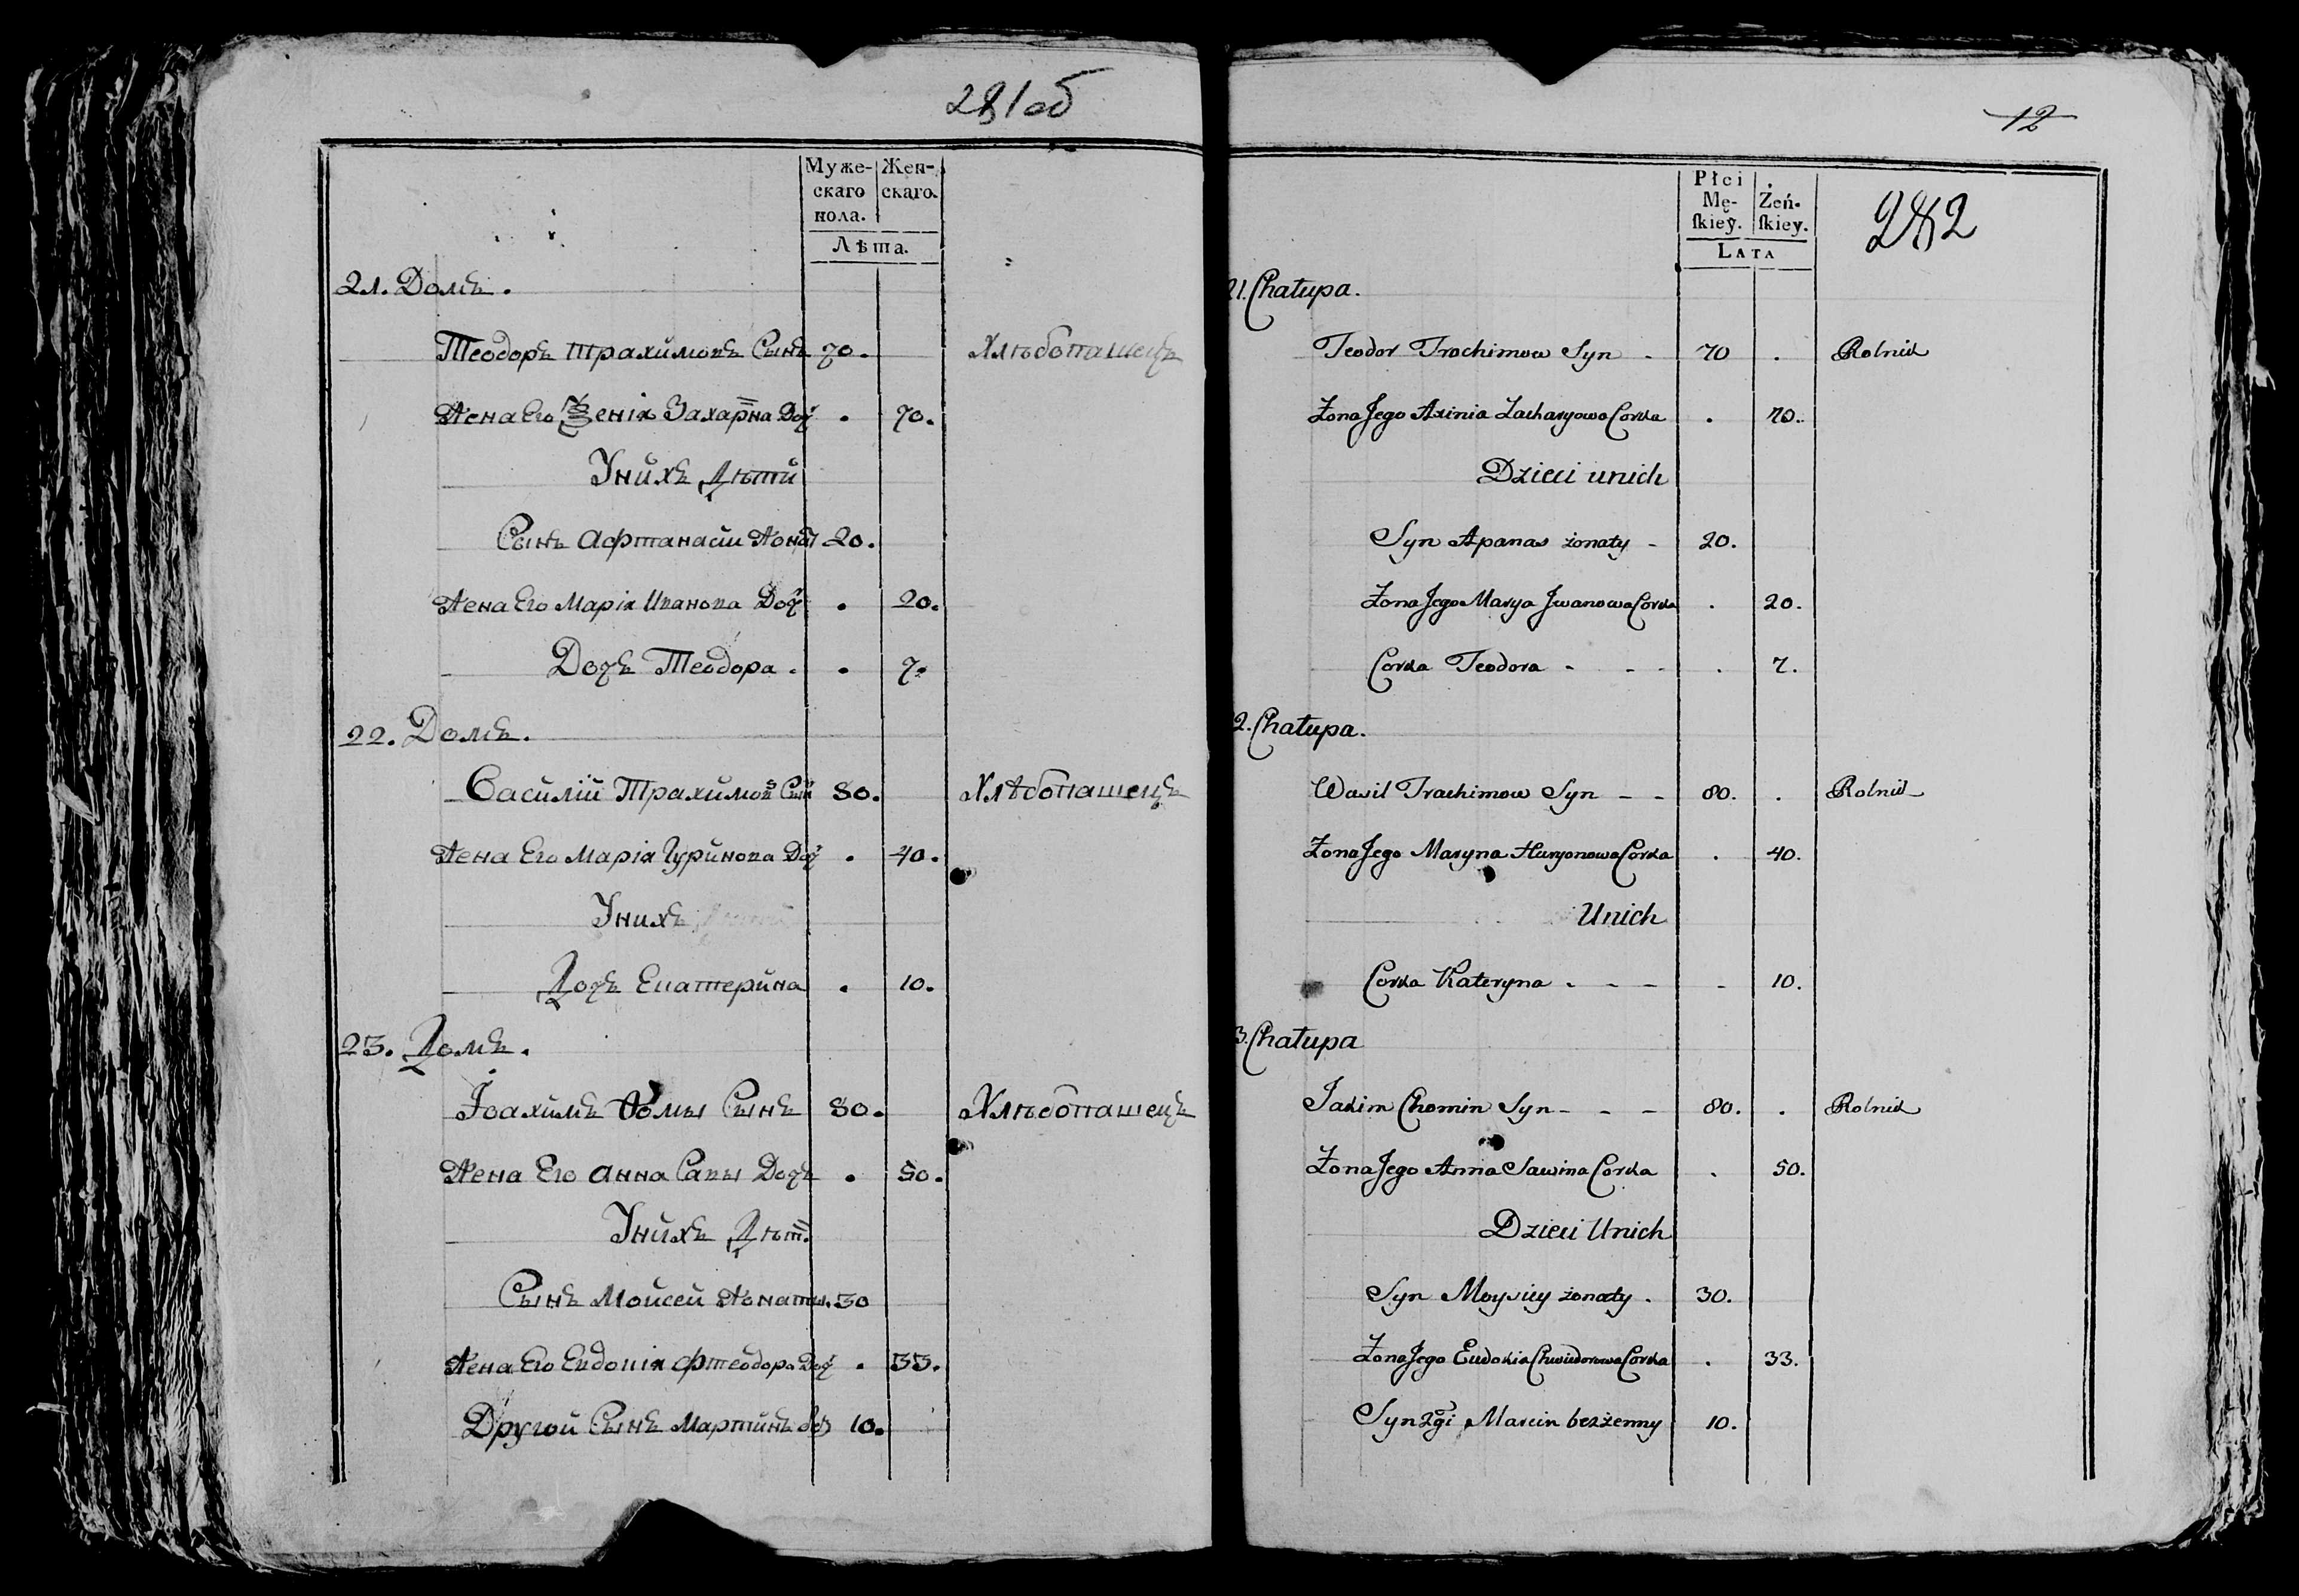 281об
Муже-
скаго
пола.
Жен-
скаго.
Лѣта.
21. Домъ.
Теодоръ Трахимовъ Сынъ 70. Хлѣбопашецъ
Жена Его Ѯенія Захарна Доч . 70.
У нихъ Дѣти
Сынъ Афтанасій Жонат 20.
Жена Его Марія Иванова Доч . 20.
Дочъ Теодора . . 7.
22. Домъ.
Василій Трахимов Сын 80. Хлѣбопашецъ
Жена Его Марія Гуринова Доч . 40.
У нихъ
Дочъ Екатерина . 10.
23. Домъ.
Іоахимъ Ѳомы Сынъ 80. Хлѣбопашецъ
Жена Его Анна Савы Дочъ . 50.
У нихъ Дѣт.
Сынъ Мойсей Жонаты. 30
Жена Его Евдокія Фтеодора Доч . 33.
Другой Сынъ Мартинъ 10.
12
282
Płci
Mę-
ſkiey.
Żeń-
ſkiey.
LATA
21. Chałupa.
Teodor Trochimow Syn - 70 . Rolnik
Żona Jego Axinia Zacharyowa Corka . 70.
Dzieci unich
Syn Apanas żonaty - 20.
Żona Jego Marya Jwanowa Corka . 20.
Corka Teodora - - - . 7.
2. Chałupa.
Wasil Trachimow Syn - - 80. . Rolnik
Żona Jego Maryna Huryonowa Corka . 40.
Unich
Corka Kateryna - - - - 10.
3. Chałupa
Jakim Chomin Syn - - - 80. . Rolnik
Żona Jego Anna Sawina Corka . 50.
Dzieci Unich
Syn Moysiey żonaty . 30.
Żona Jego Eudokia Chwiedorowa Corka . 33.
Syn 2gi Marcin bezżenny 10.